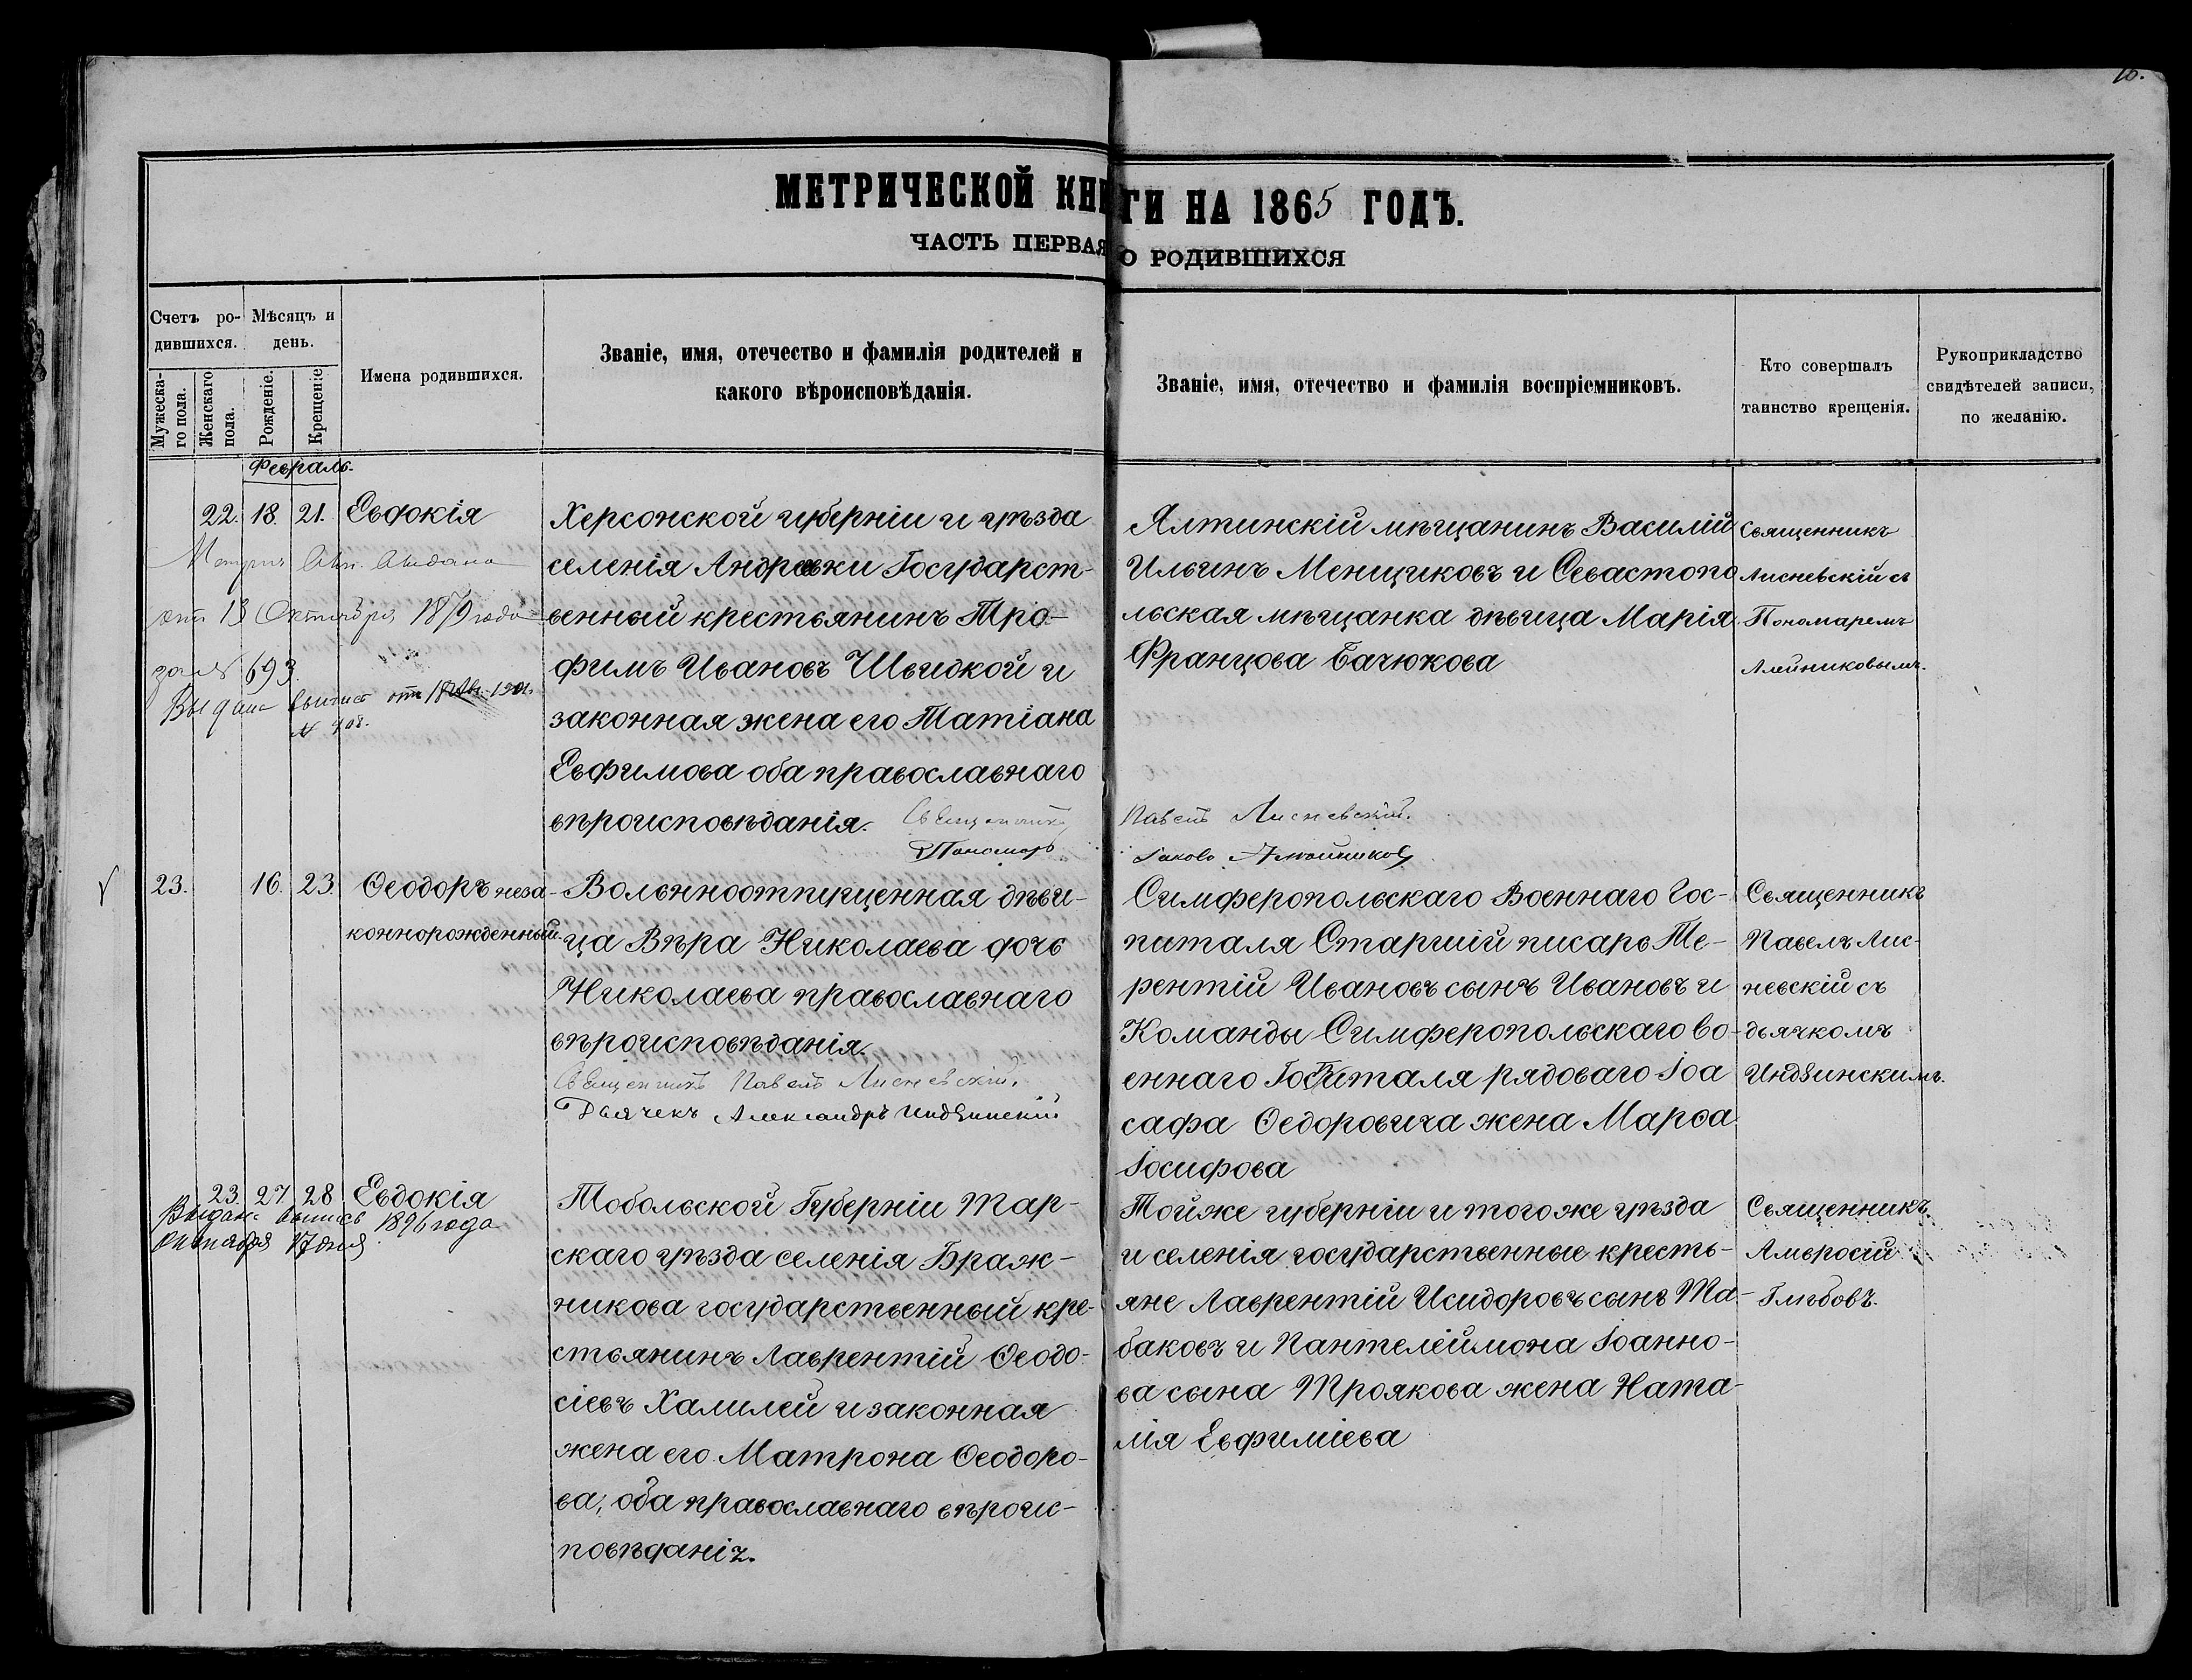 16.
МЕТРИЧЕСКОЙ КНИГИ НА 1865 ГОДЪ.
ЧАСТЬ ПЕРВАЯ О РОДИВШИХСЯ
Счетъ ро-
дившихся.
Мужеска-
го пола.
Женскаго
пола.
Мѣсяцъ и
день.
Рожденіе.
Крещеніе
Имена родившихся.
Званіе, имя, отечество и фамилія родителей и
какого вѣроисповѣданія.
Званіе, имя, отечество и фамилія воспріемниковъ.
Кто совершалъ
таинство крещенія.
Рукоприкладство
свидѣтелей записи,
по желанію.
Февраль.
22. 18. 21. Евдокія
Метрич. выдано
отъ 13 Октября 1879 года
за № 693.
Выдана выпись отъ 18 1901.
№ 708.
Херсонской губерніи и уѣзда
селенія Андреевки Государст-
венный крестьянинъ Тро-
фимъ Ивановъ Швидкой и
законная жена его Татіана
Евфимова оба православнаго
вѣроисповѣданія. Священникъ Павелъ Лисневскій.
Пономарь Іаковъ
Ялтинскій мѣщанинъ Василій
Ильинъ Менщиковъ и Севастопо
льская мѣщанка дѣвица Марія
Францова Бачюкова
Священникъ
Лисневскій съ
Пономаремъ
23. 16. 23. Ѳеодоръ неза-
коннорожденный.
Вольноотпущенная дѣви-
ца Вѣра Николаева дочь
Николаева православнаго
вѣроисповѣданія.
Священникъ Павелъ Лисневскій.
Дьячекъ Александръ Индзинскій
Симферопольскаго Военнаго Гос-
питаля Старшій писарь Те-
рентій Ивановъ сынъ Ивановъ и
Команды Симферопольскаго во-
еннаго Госпиталя рядоваго Іоа
сафа Ѳедоровича жена Марѳа
Іосифова
Священникъ
Павелъ Лис-
невскій съ
дьячкомъ
Индзинскимъ.
23. 27 28 Евдокія
Выдана выпись 1896 года
Октября 17 дня
Тобольской Губерніи Тар-
скаго уѣзда селенія Браж-
никова государственный кре-
стьянинъ Лаврентій Ѳеодо-
сіевъ Халилей и законная
жена его Матрона Ѳеодоро-
ва, оба православнаго вѣроис-
повѣданія.
Тойже губерніи и того же уѣзда
и селенія государственные кресть-
яне Лаврентій Исидоровъ сынъ Та-
баковъ и Пантелеймона Іоанно-
ва сына Троякова жена Ната-
лія Евфиміева
Священникъ
Амвросій
Глѣбовъ.